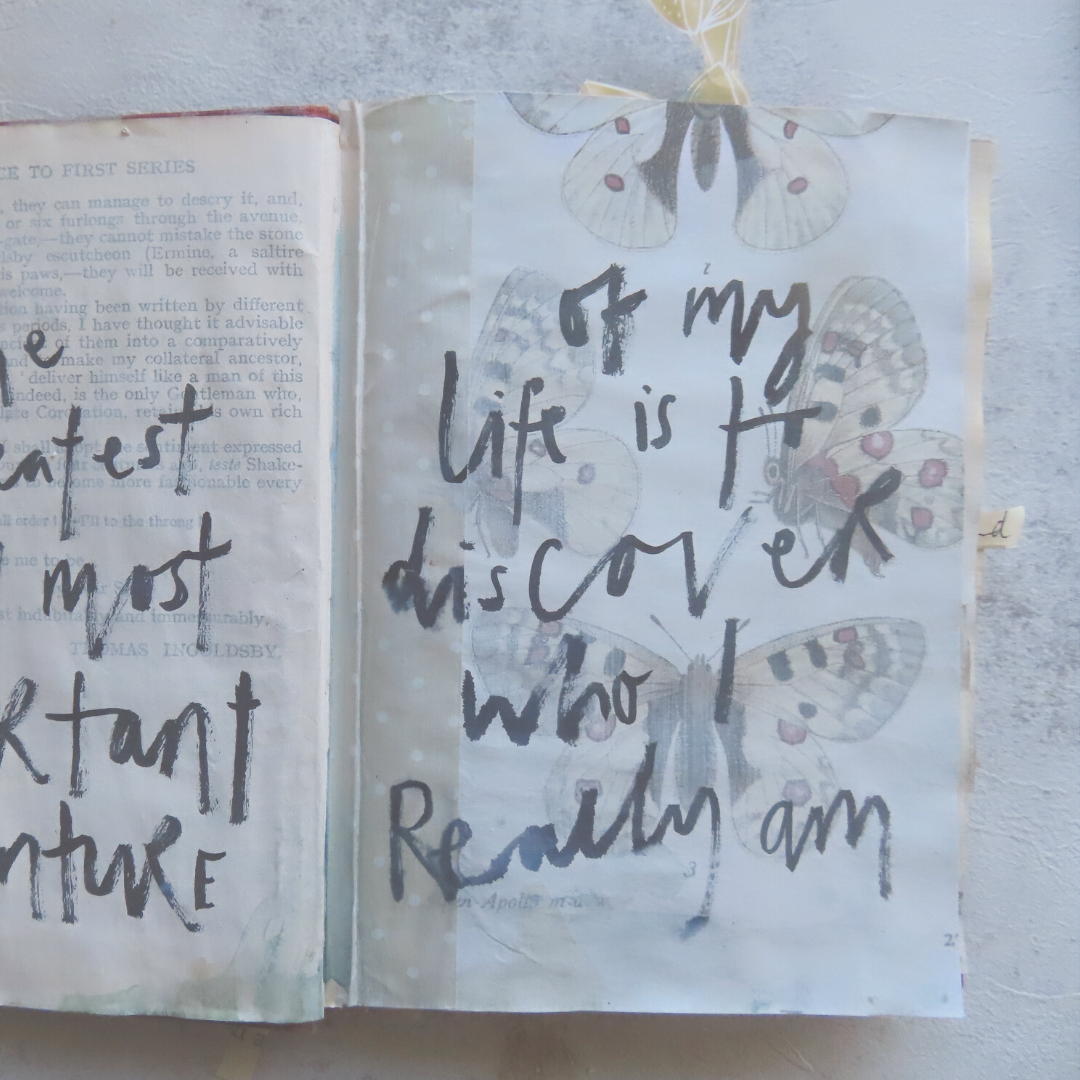 CE TO FIRST SERIES
, they can manage to descry it, and,
or six furlongs through the avenue,
-gate,—they cannot mistake the stone
lsby escutcheon (Ermine, a saltire
is paws,—they will be received with
welcome.
tion having been written by different
periods, I have thought it advisable
of them into a comparatively
make my collateral ancestor,
deliver himself like a man of this
indeed, is the only Gentleman who,
late Coronation, retains his own rich
shall adopt the sentiment expressed
teste Shake-
to become more fashionable every
to the throng
me to be,
indubitably and immeasurably,
THOMAS INGOLDSBY.
he
eatest
most
Rtant
ntuRE
of my
life is to
discoveR
who I
Really am
3
Apollo
2
d